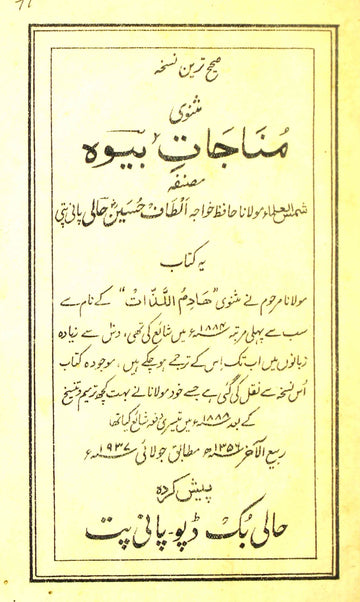 صحیح ترین نسخہ
مثنوی
مُنَاجَاتِ بیوہ
مصنفہ
شمس العلماء مولانا حافظ خواجہ اَلطَاف حُسَین حالی پانی پتی
یہ کتاب
مولانا مرحوم نے مثنوی "ھَادِمُ اللَّذَات" کے نام سے
سب سے پہلی مرتبہ ۱۸۸۴ء میں شائع کی تھی، دس سے زیادہ
زبانوں میں اب تک اِس کے ترجمے ہو چکے ہیں، موجودہ کتاب
اُس نسخہ سے نقل کی گئی ہے جسے خود مولانا نے بہت کچھ ترمیم و تنسیخ
کے بعد ۱۸۸۹ء میں تیسری دفعہ شائع کیا تھا
ربیع الآخر ۱۳۵۶ھ مطابق جولائی ۱۹۳۷ء
پیش کردہ
حالی بُک ڈپو۔ پانی پت